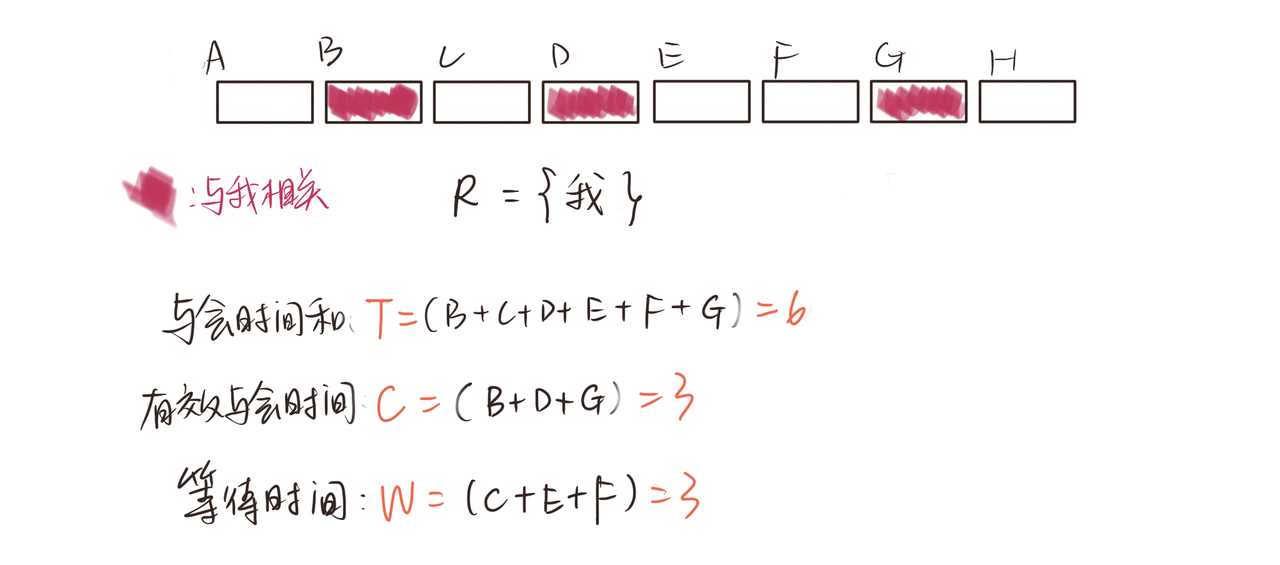 A B C D E F G H
:与我相关 R = {我}
与会时间和: T=(B+C+D+E+F+G)=6
有效与会时间: C=(B+D+G)=3
等待时间: W=(C+E+F)=3